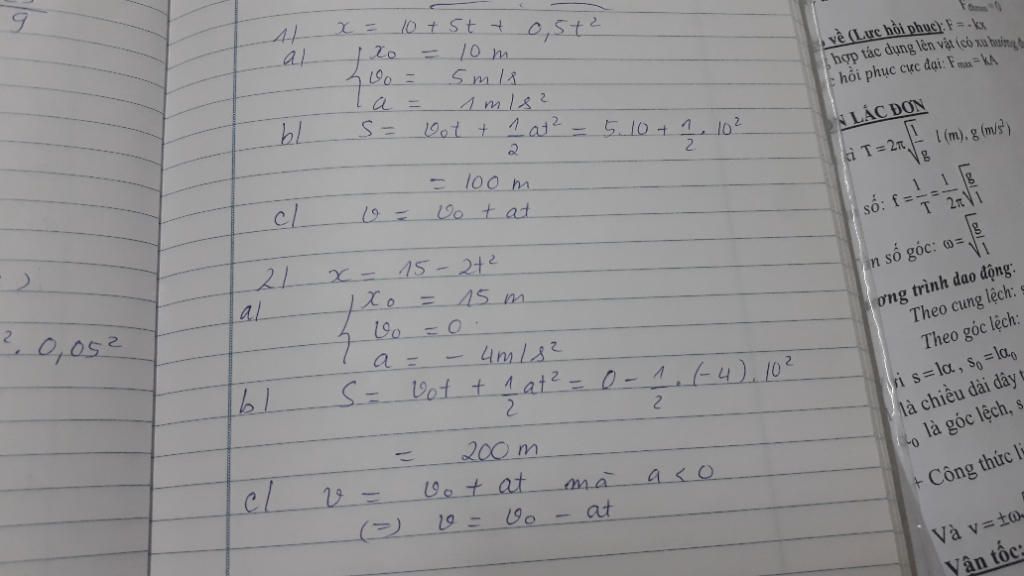 9
1) x = 10 + 5t + 0,5t²
a) { x₀ = 10 m
v₀ = 5 m/s
a = 1 m/s²
b) S = v₀t + 1/2 at² = 5.10 + 1/2 . 10²
= 100 m
c) v = v₀ + at
2) x = 15 - 2t²
a) { x₀ = 15 m
v₀ = 0
a = - 4m/s²
b) S = v₀t + 1/2 at² = 0 - 1/2 . (-4) . 10²
= 200 m
c) v = v₀ + at mà a < 0
(=) v = v₀ - at
)
². 0,05²
về (Lực hồi phục): F = - kx
hợp tác dụng lên vật (có xu hướng
hồi phục cực đại: Fmax = kA
LẮC ĐƠN
T = 2π√(l/g) l (m), g (m/s²)
số: f = 1/T = 1/2π √(g/l)
số góc: ω = √(g/l)
trình dao động:
Theo cung lệch:
Theo góc lệch:
s = lα, s₀ = lα₀
là chiều dài dây
là góc lệch, s
+ Công thức
Và v = ±ω
Vận tốc: